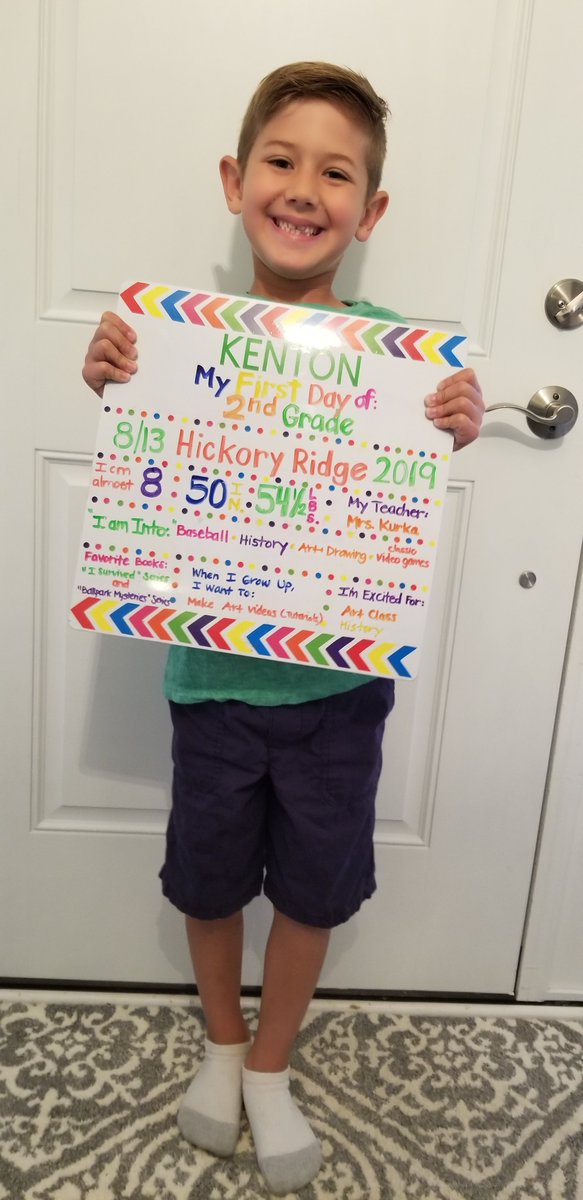 KENTON
My First Day of:
2nd Grade
8/13 Hickory Ridge 2019
I am almost 8
50 IN.
54½ LBS.
My Teacher:
Mrs. Kurka
"I am Into:" Baseball • History • Art Drawing • classic Video games
Favorite Books:
"I Survived" Series
and
"Ballpark Mysteries" Series
When I Grow Up,
I Want To:
Make Art Videos (Tutorials)
I'm Excited For:
Art Class
History